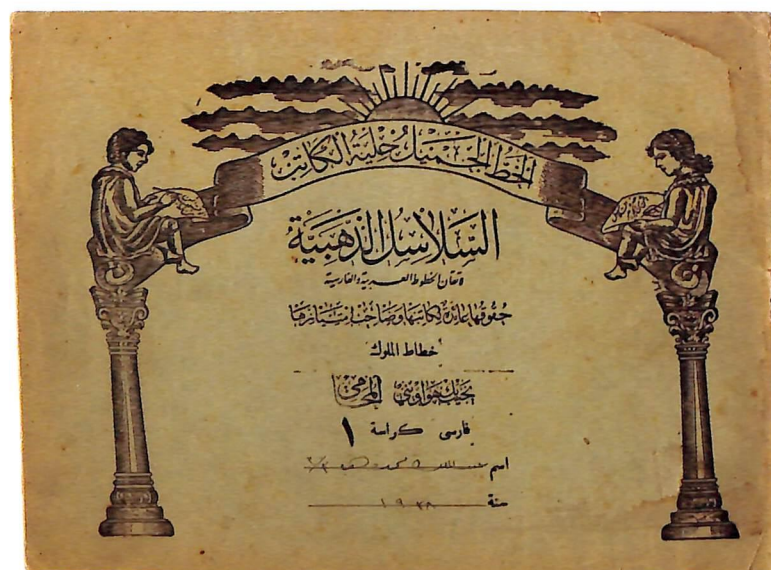 الخط الجميل حلية الكاتب
السلاسل الذهبية
لاتقان الخطوط العربية والفارسية
حقوقها عائدة لكاتبها وصاحب امتيازها
خطاط الملوك
نجيب بك هواويني المحامي
فارسى كراسة ١
اسم عبد الله محمد
سنة ١٩٣٨